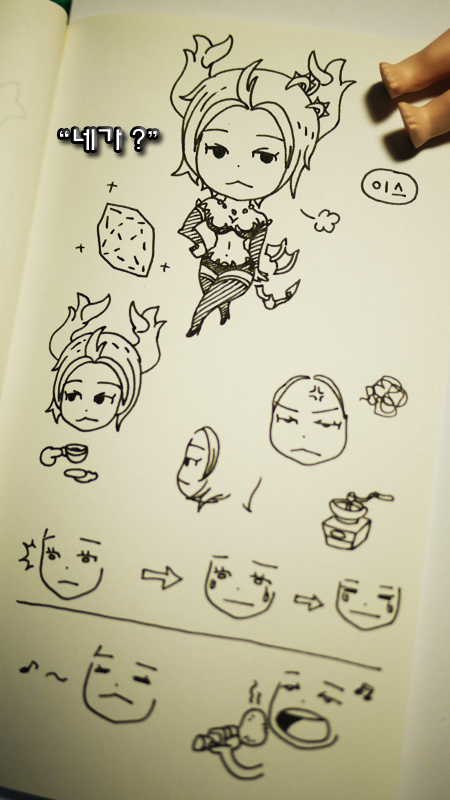 “네가 ?”
이스